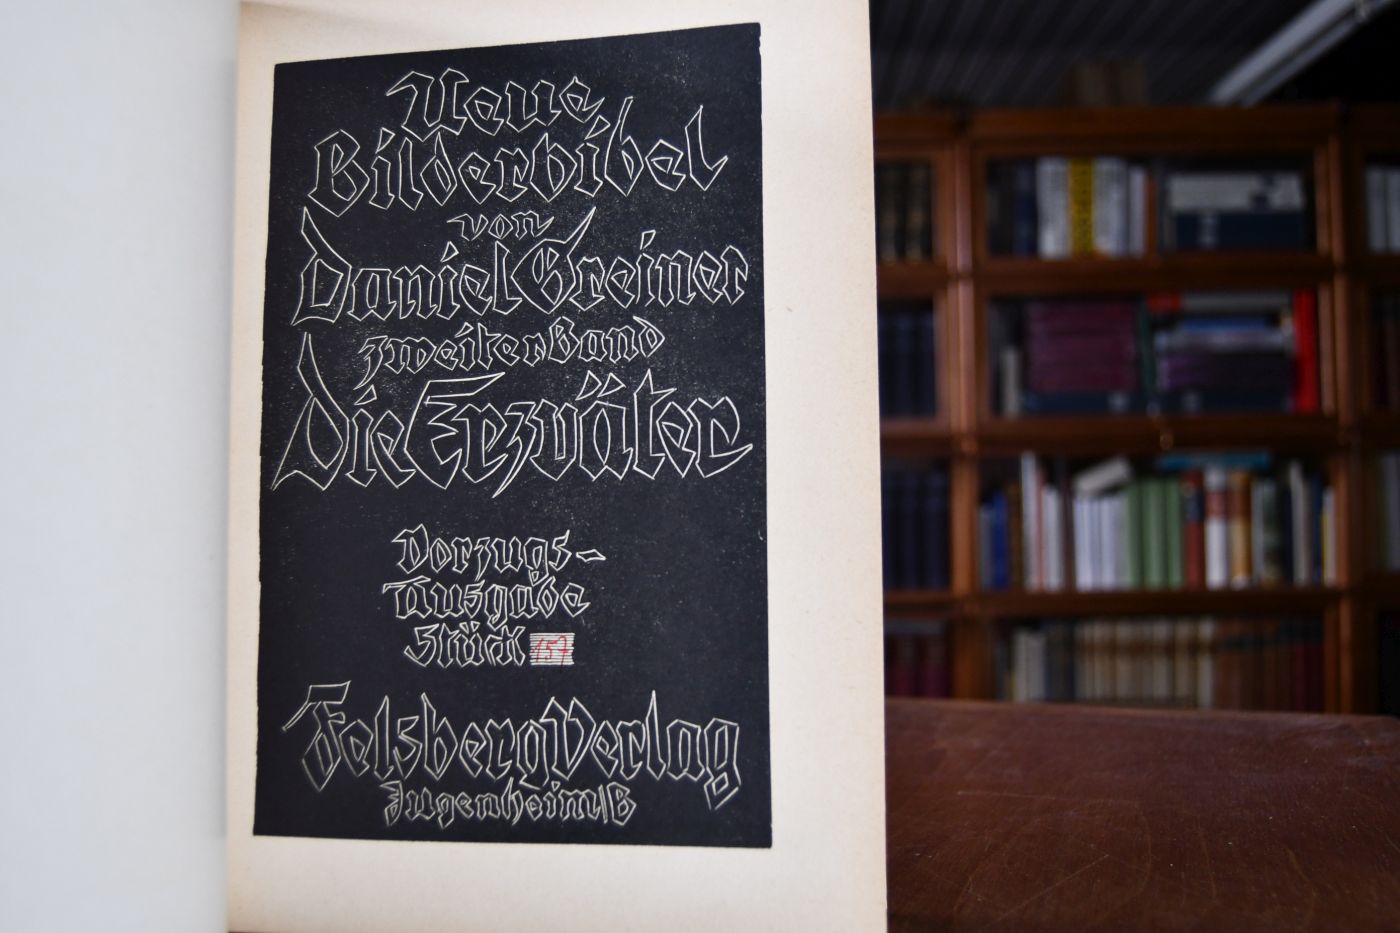 Neue
Bilderbibel
von
Daniel Greiner
zweiter Band
Die Erzväter
Vorzugs-
Ausgabe
Stück 157
Felsberg Verlag
Jugenheim/B